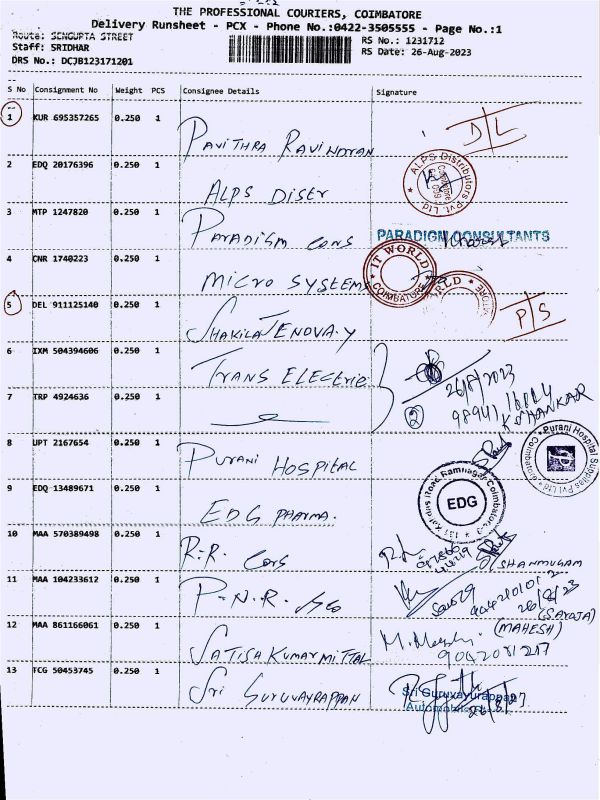 THE PROFESSIONAL COURIERS, COIMBATORE
Delivery Runsheet - PCX - Phone No.:0422-3505555 - Page No.:1
Route: SENGUPTA STREET
Staff: SRIDHAR
DRS No.: DCJB123171201
RS No.: 1231712
RS Date: 26-Aug-2023
S No Consignment No Weight PCS Consignee Details Signature
1 KUR 695357265 0.250 1 PAVITHRA RAVINDRAN D/L
2 EDQ 20176396 0.250 1 ALPS DISTR ALPS Distributors Pvt. Ltd.
3 MTP 1247820 0.250 1 PARADISM CONS PARADIGM CONSULTANTS
4 CNR 1740223 0.250 1 MICRO SYSTEMS IT WORLD COIMBATORE
5 DEL 911125140 0.250 1 SHAKILA JENOVA.Y P/S
6 IXM 504394606 0.250 1 TRANS ELECTRIC 26/8/2023
7 TRP 4924636 0.250 1 2
8 UPT 2167654 0.250 1 PURANI HOSPITAL Purani Hospital Supplies Pvt Ltd
9 EDQ 13489671 0.250 1 EDG PHARMA. EDG Ramnagar Coimbatore
10 MAA 570389498 0.250 1 R.R. Cons SHANMUGAM
11 MAA 104233612 0.250 1 P.N.R. &co (SAROJA)
12 MAA 861166061 0.250 1 SATISH KUMAR MITTAL (MAHESH)
9042081217
13 TCG 50453745 0.250 1 SRI GURUVAYRAPPAN Sri Guruvayurappan
Automobiles